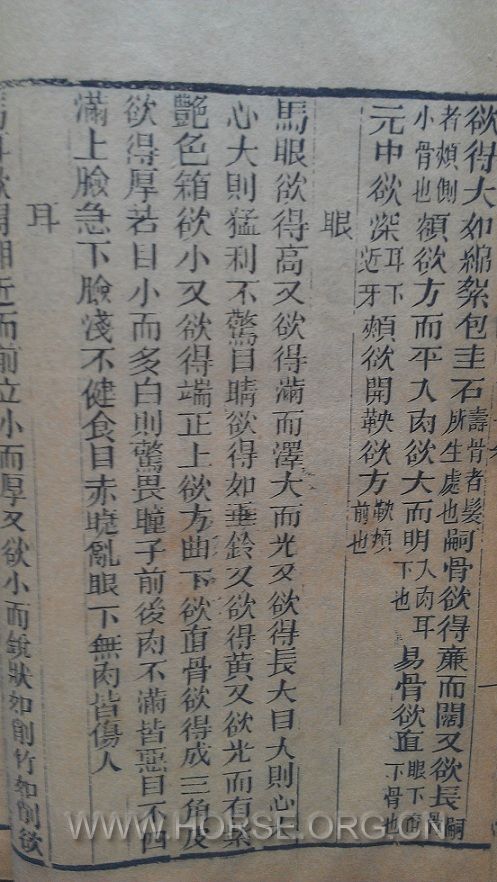 欲得大如綿絮包圭石壽骨者髮所生處也嗣骨欲得廉而闊又欲長嗣骨
者頰側小骨也額欲方而平入肉欲大而明入肉耳下也易骨欲直眼下直下骨也
元中欲深耳下近牙頰欲開鞅欲方鞅頰前也
眼
馬眼欲得高又欲得滿而澤大而光又欲得長大目大則心大
心大則猛利不驚目睛欲得如垂鈴又欲得黃又欲光而有紫
艷色箱欲小又欲得端正上欲方曲下欲直骨欲得成三角皮
欲得厚若目小而多白則驚畏瞳子前後肉不滿皆惡目不四
滿上臉急下臉淺不健食目赤曉亂眼下無肉皆傷人
耳
欲得相近而前立小而厚又欲小而銳狀如削竹如削欲
WWW.HORSE.ORG.CN